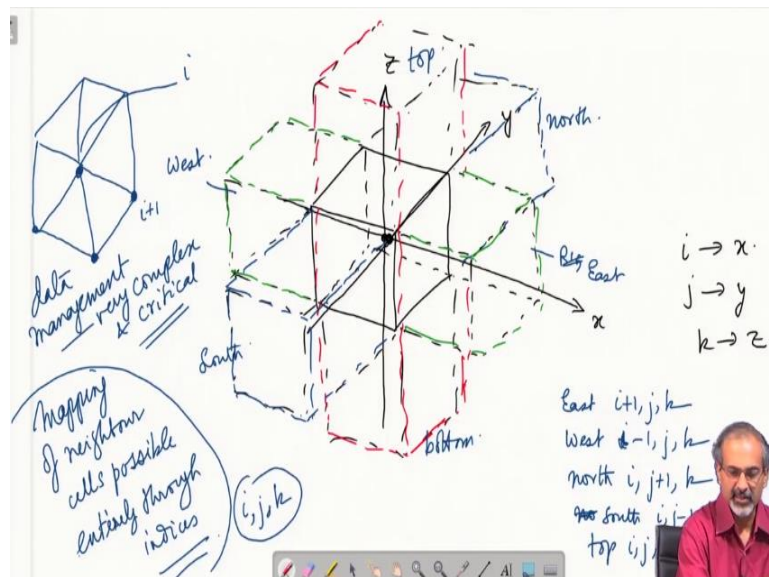 i
i+1
data
management
very complex
& critical
mapping
of neighbour
cells possible
entirely through
indices
i, j, k
z
top
y
north.
West.
East
x
South
bottom.
i → x.
j → y
k → z
East i+1, j, k
West i-1, j, k
north i, j+1, k
South i, j-1
top i, j,
A